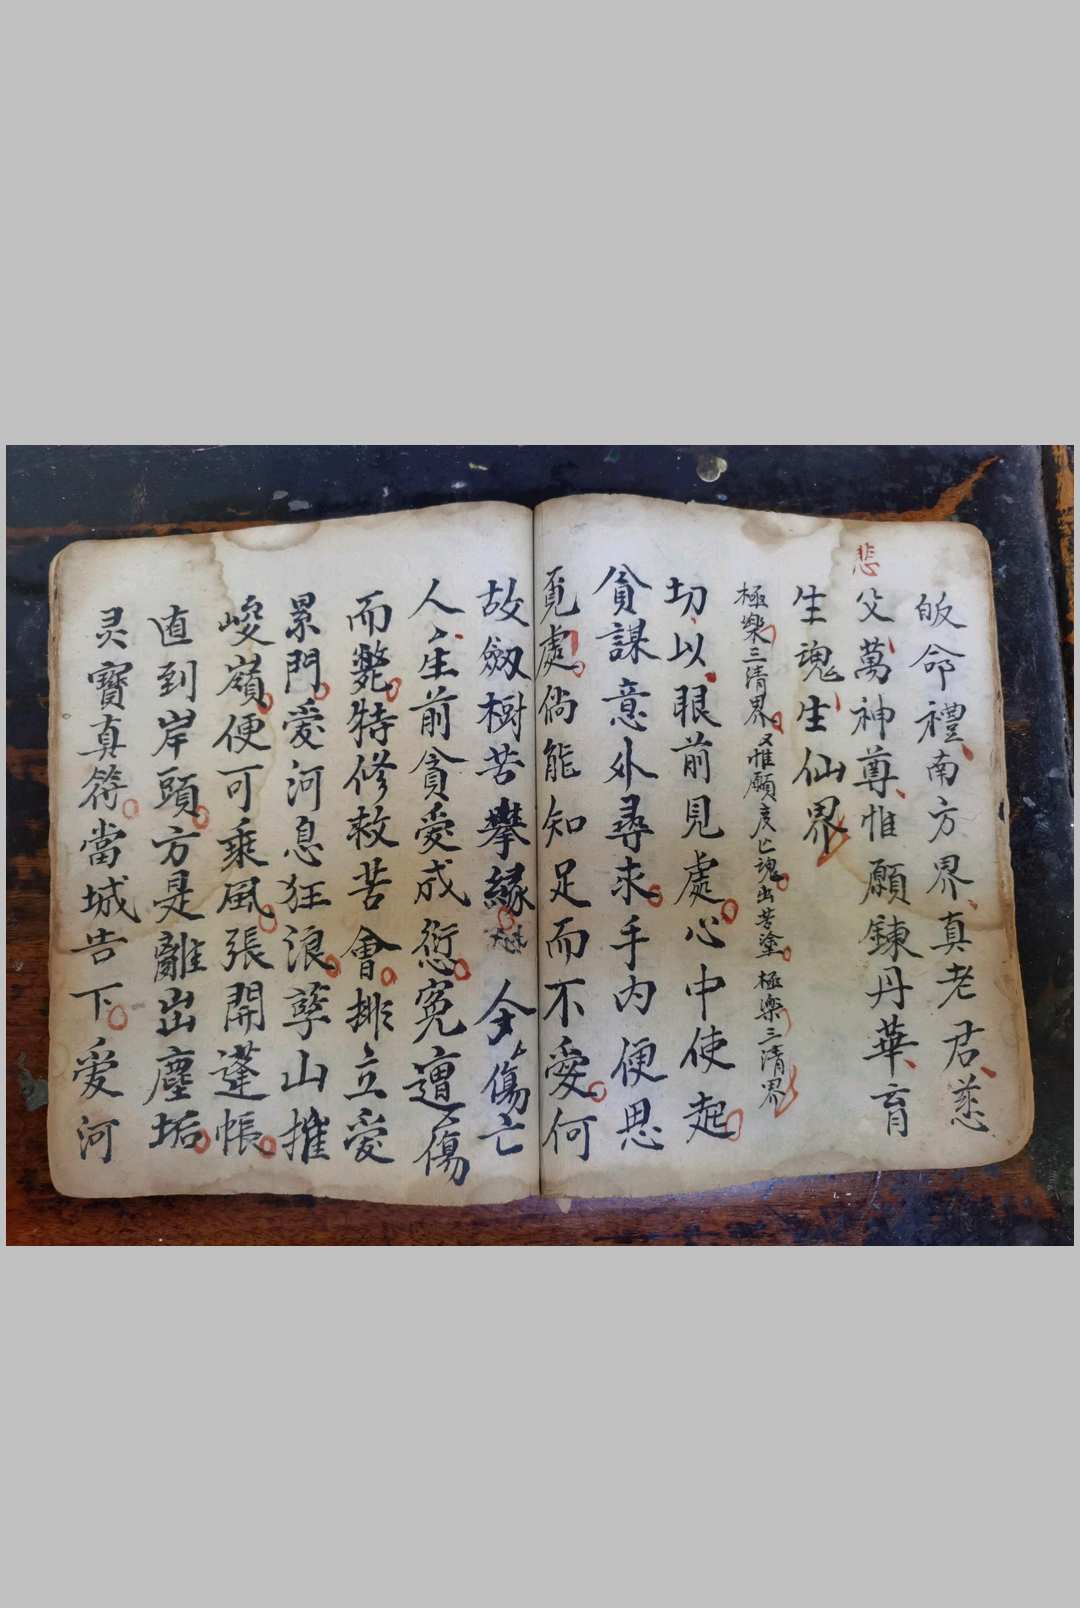 皈命禮南方界真老君慈
悲
父萬神尊惟願鍊丹華育
生魂生仙界
極樂三清界又惟願度亡魂出苦塗極樂三清界
切以眼前見處心中使起
貪謀意外尋求手內便思
覓處倘能知足而不愛何
故劔樹苦攀緣 今傷亡
人人生前貪愛成愆冤遭傷
而斃特修救苦會排立愛
累門愛河息狂浪孽山摧
峻嶺便可乘風張開蓬帳
直到岸頭方是離出塵垢
灵寶真符當城告下愛河